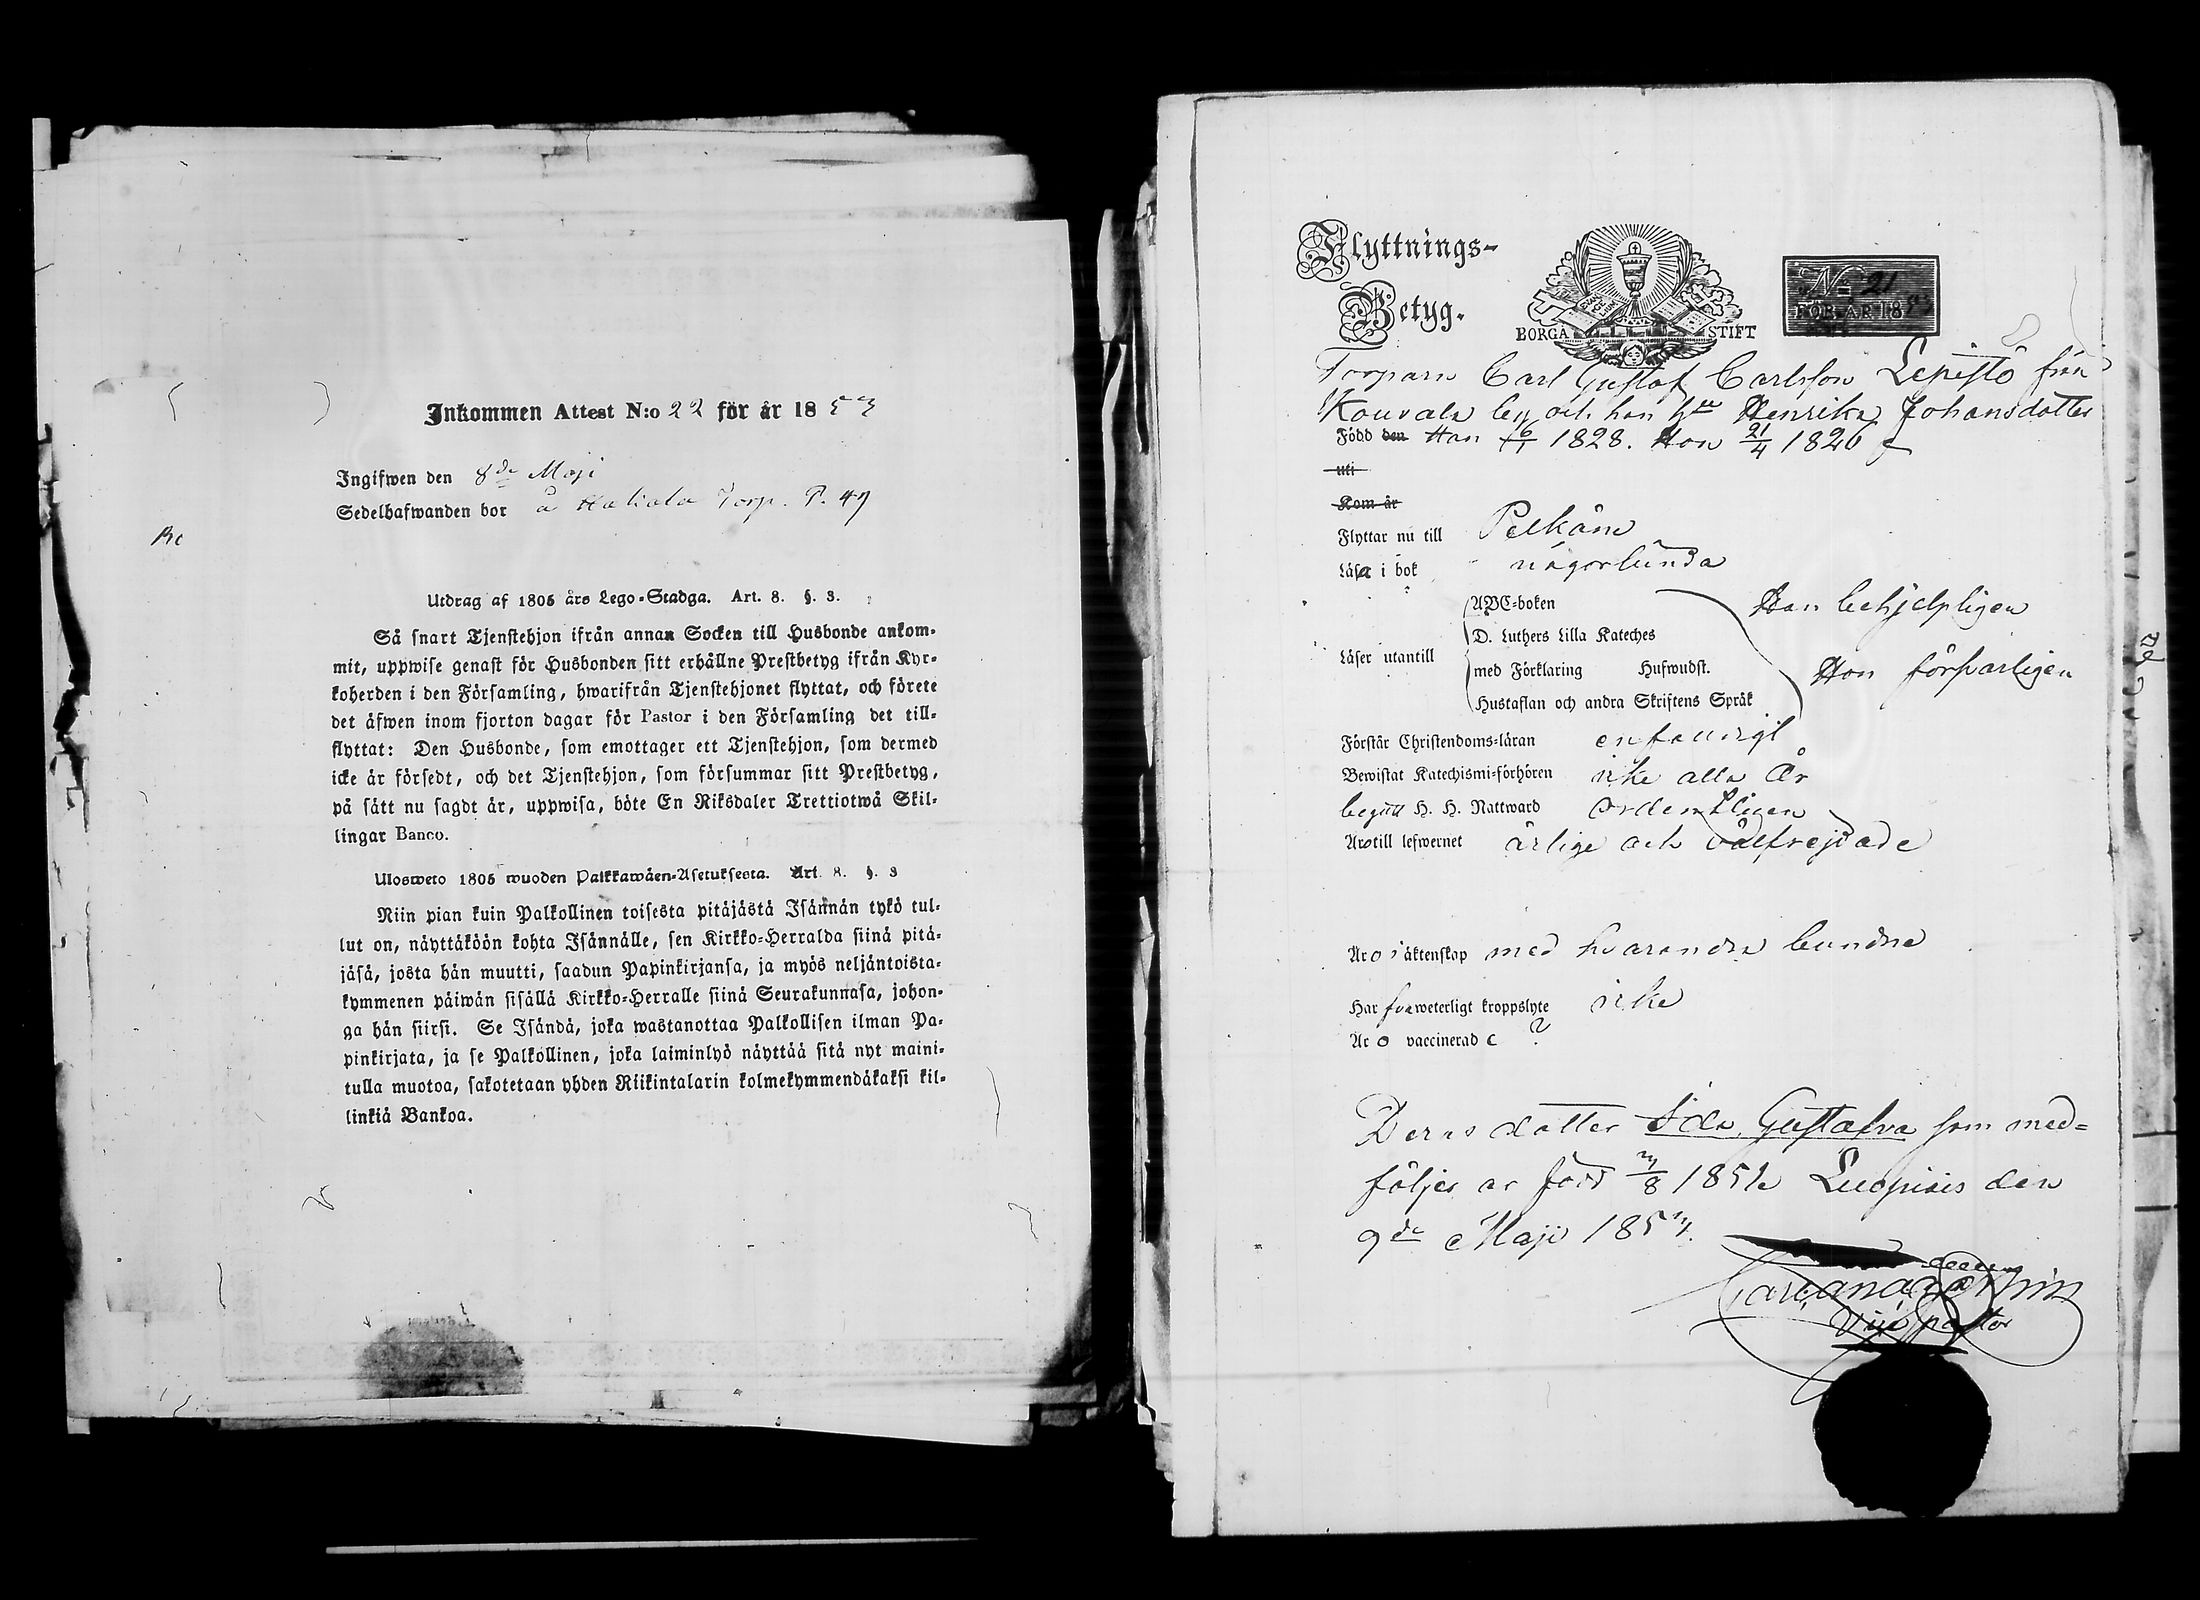 Inkommen Attest N:o 22 för år 1853
Ingifwen den 8de Maji
Sedelhafwanden bor å Torp. P. 47
Utdrag af 1805 års Lego-Stadga. Art. 8. §. 3.
Så snart Tjenstehjon ifrån annan Socken till Husbonde ankom-
mit, uppwise genast för Husbonden sitt erhållne Prestbetyg ifrån Kyr-
koherden i den Församling, hwarifrån Tjenstehjonet flyttat, och förete
det äfwen inom fjorton dagar för Pastor i den Församling det till-
flyttat: Den Husbonde, som emottager ett Tjenstehjon, som dermed
icke är försedt, och det Tjenstehjon, som försummar sitt Prestbetyg,
på sätt nu sagdt är, uppwisa, böte En Riksdaler Trettiotwå Skil-
lingar Banco.
Ulosweto 1805 wuoden Palkkawäen-Asetuksesta. Art. 8. §. 3
Niin pian kuin Palkollinen toisesta pitäjästä Isännän tykö tul-
lut on, näyttäköön kohta Isännälle, sen Kirkko-Herralda siinä pitä-
jäsä, josta hän muutti, saadun Papinkirjansa, ja myös neljäntoista-
kymmenen päiwän sisällä Kirkko-Herralle siinä Seurakunnasa, johon-
ga hän siirsi. Se Isändä, joka wastanottaa Palkollisen ilman Pa-
pinkirjata, ja se Palkollinen, joka laiminlyö näyttää sitä nyt maini-
tulla muotoa, sakotetaan yhden Riikintalarin kolmekymmendäkaksi kil-
linkiä Bankoa.
Flyttnings-
Betyg.
BORGÅ STIFT
No 21
FÖR ÅR 1853
Torparn Carl Gustaf Carlsson Lepistö från
Kouvala by och han hu Henrika Johansdotter
Född den Han 1828. Hon 21/4 1826
uti
Kom år
Flyttar nu till Pelkäne
Läsa i bok någorlunda
Läser utantill
ABC-boken
D. Luthers Lilla Kateches
med Förklaring Hufwudst.
Hustaflan och andra Skriftens Språk
Han behjelpligen
Hon försvarligen
Förstår Christendoms-läran enfaldigt
Bewistat Katechismi-förhören icke alla År
begått H. H. Nattward ordentligen
Äro till lefwernet ärlige och välfrejdade
Äro i äktenskap med hvarandra bundne
Har fvaweterligt kroppslyte icke
Äro vaccinerade ?
Deras dotter Ida Gustafva som med=
följer är född 1852 Luopiois den
9de Maji 1853.
Vice pastor